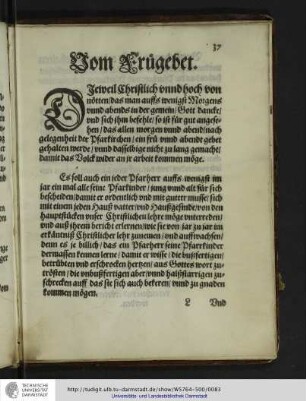 37
Vom Frügebet.
DJeweil Christlich vnnd hoch von
nötten / das man auffs wenigst Morgens
vnnd abends in der gemein / Gott dancke /
vnd sich jhm befehle / so ist für gut angese-
hen / das allen morgen vnnd abend / nach
gelegenheit der Pfarkirchen / ein frü vnnd abende gebet
gehalten werde / vnnd dasselbige nicht zu lang gemacht /
damit das Volck wider an jr arbeit kommen möge.
Es soll auch ein jeder Pfarherr auffs wenigst im
jar ein mal alle seine Pfarkinder / jung vnnd alt für sich
bescheiden / damit er ordenlich vnd mit gutter musse / sich
mit einem jeden Hauß vatter / vnd Haußgesinde / von den
hauptstücken vnser Christlichen lehre möge vnterreden /
vnd auß jhrem bericht erlernen / wie sie von jar zu jar im
erkäntnuß Christlicher lehr zunemen / vnd auffwachsen /
denn es je billich / das ein Pfarherr seine Pfarkinder
dermassen kennen lerne / damit er wisse / die bußfertigen /
betrübten vnd erschrocken hertzen / auß Gottes wort zu-
trösten / die vnbußfertigen aber / vnnd halßstarrigen zu-
schrecken auff das sie sich auch bekeren / vnnd zu gnaden
kommen mögen.
L Vnd
TECHNISCHE
UNIVERSITÄT
DARMSTADT
http://tudigit.ulb.tu-darmstadt.de/show/W5764-500/0083
Universitäts- und Landesbibliothek Darmstadt